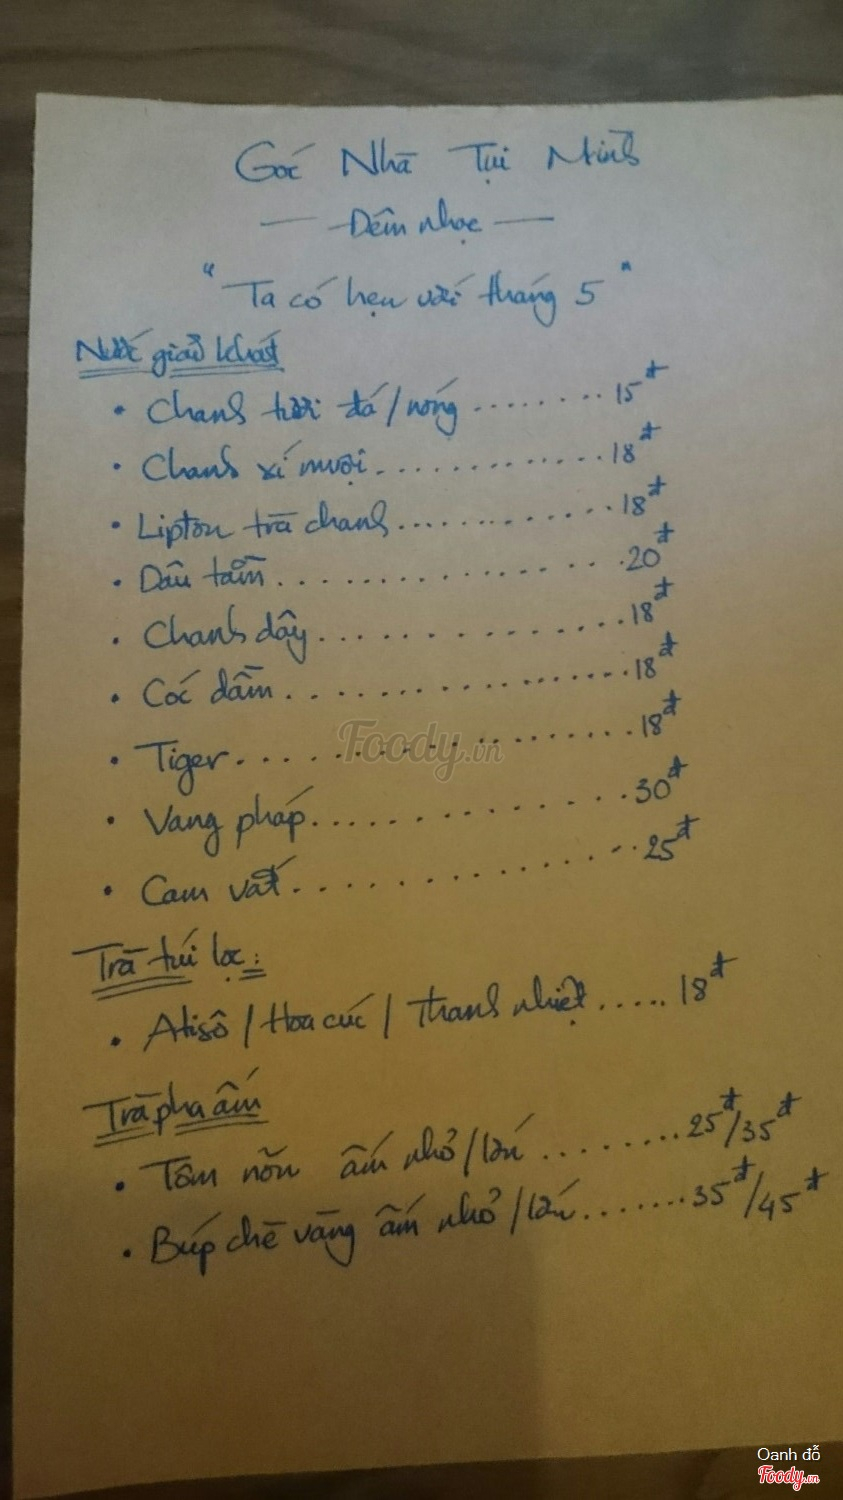 Góc Nhà Tụi Mình
— Đêm nhạc —
"Ta có hẹn với tháng 5"
Nước giải khát
• Chanh tươi đá / nóng ........ 15đ
• Chanh xí muội ............. 18đ
• Lipton trà chanh ............. 18đ
• Dâu tằm ................. 20đ
• Chanh dây ................ 18đ
• Cóc dầm ................. 18đ
• Tiger .................... 18đ
• Vang pháp .............. 30đ
• Cam vắt ................ 25đ
Trà túi lọc :
• Atisô / Hoa cúc / Thanh nhiệt ..... 18đ
Trà pha ấm
• Tôm nõn ấm nhỏ / lớn ........ 25đ/35đ
• Búp chè vàng ấm nhỏ / lớn ....... 35đ/45đ
Foody.vn
Oanh đỗ
Foody.vn